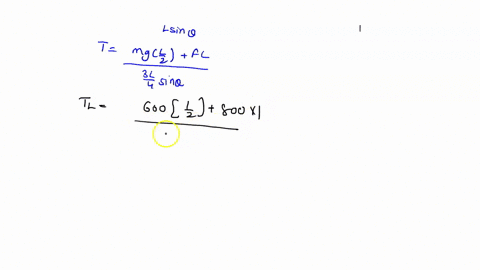 L sinθ
T = mg(L/2) + FL
3L/4 sinθ
T_L = 600 [L/2] + 800 x 1